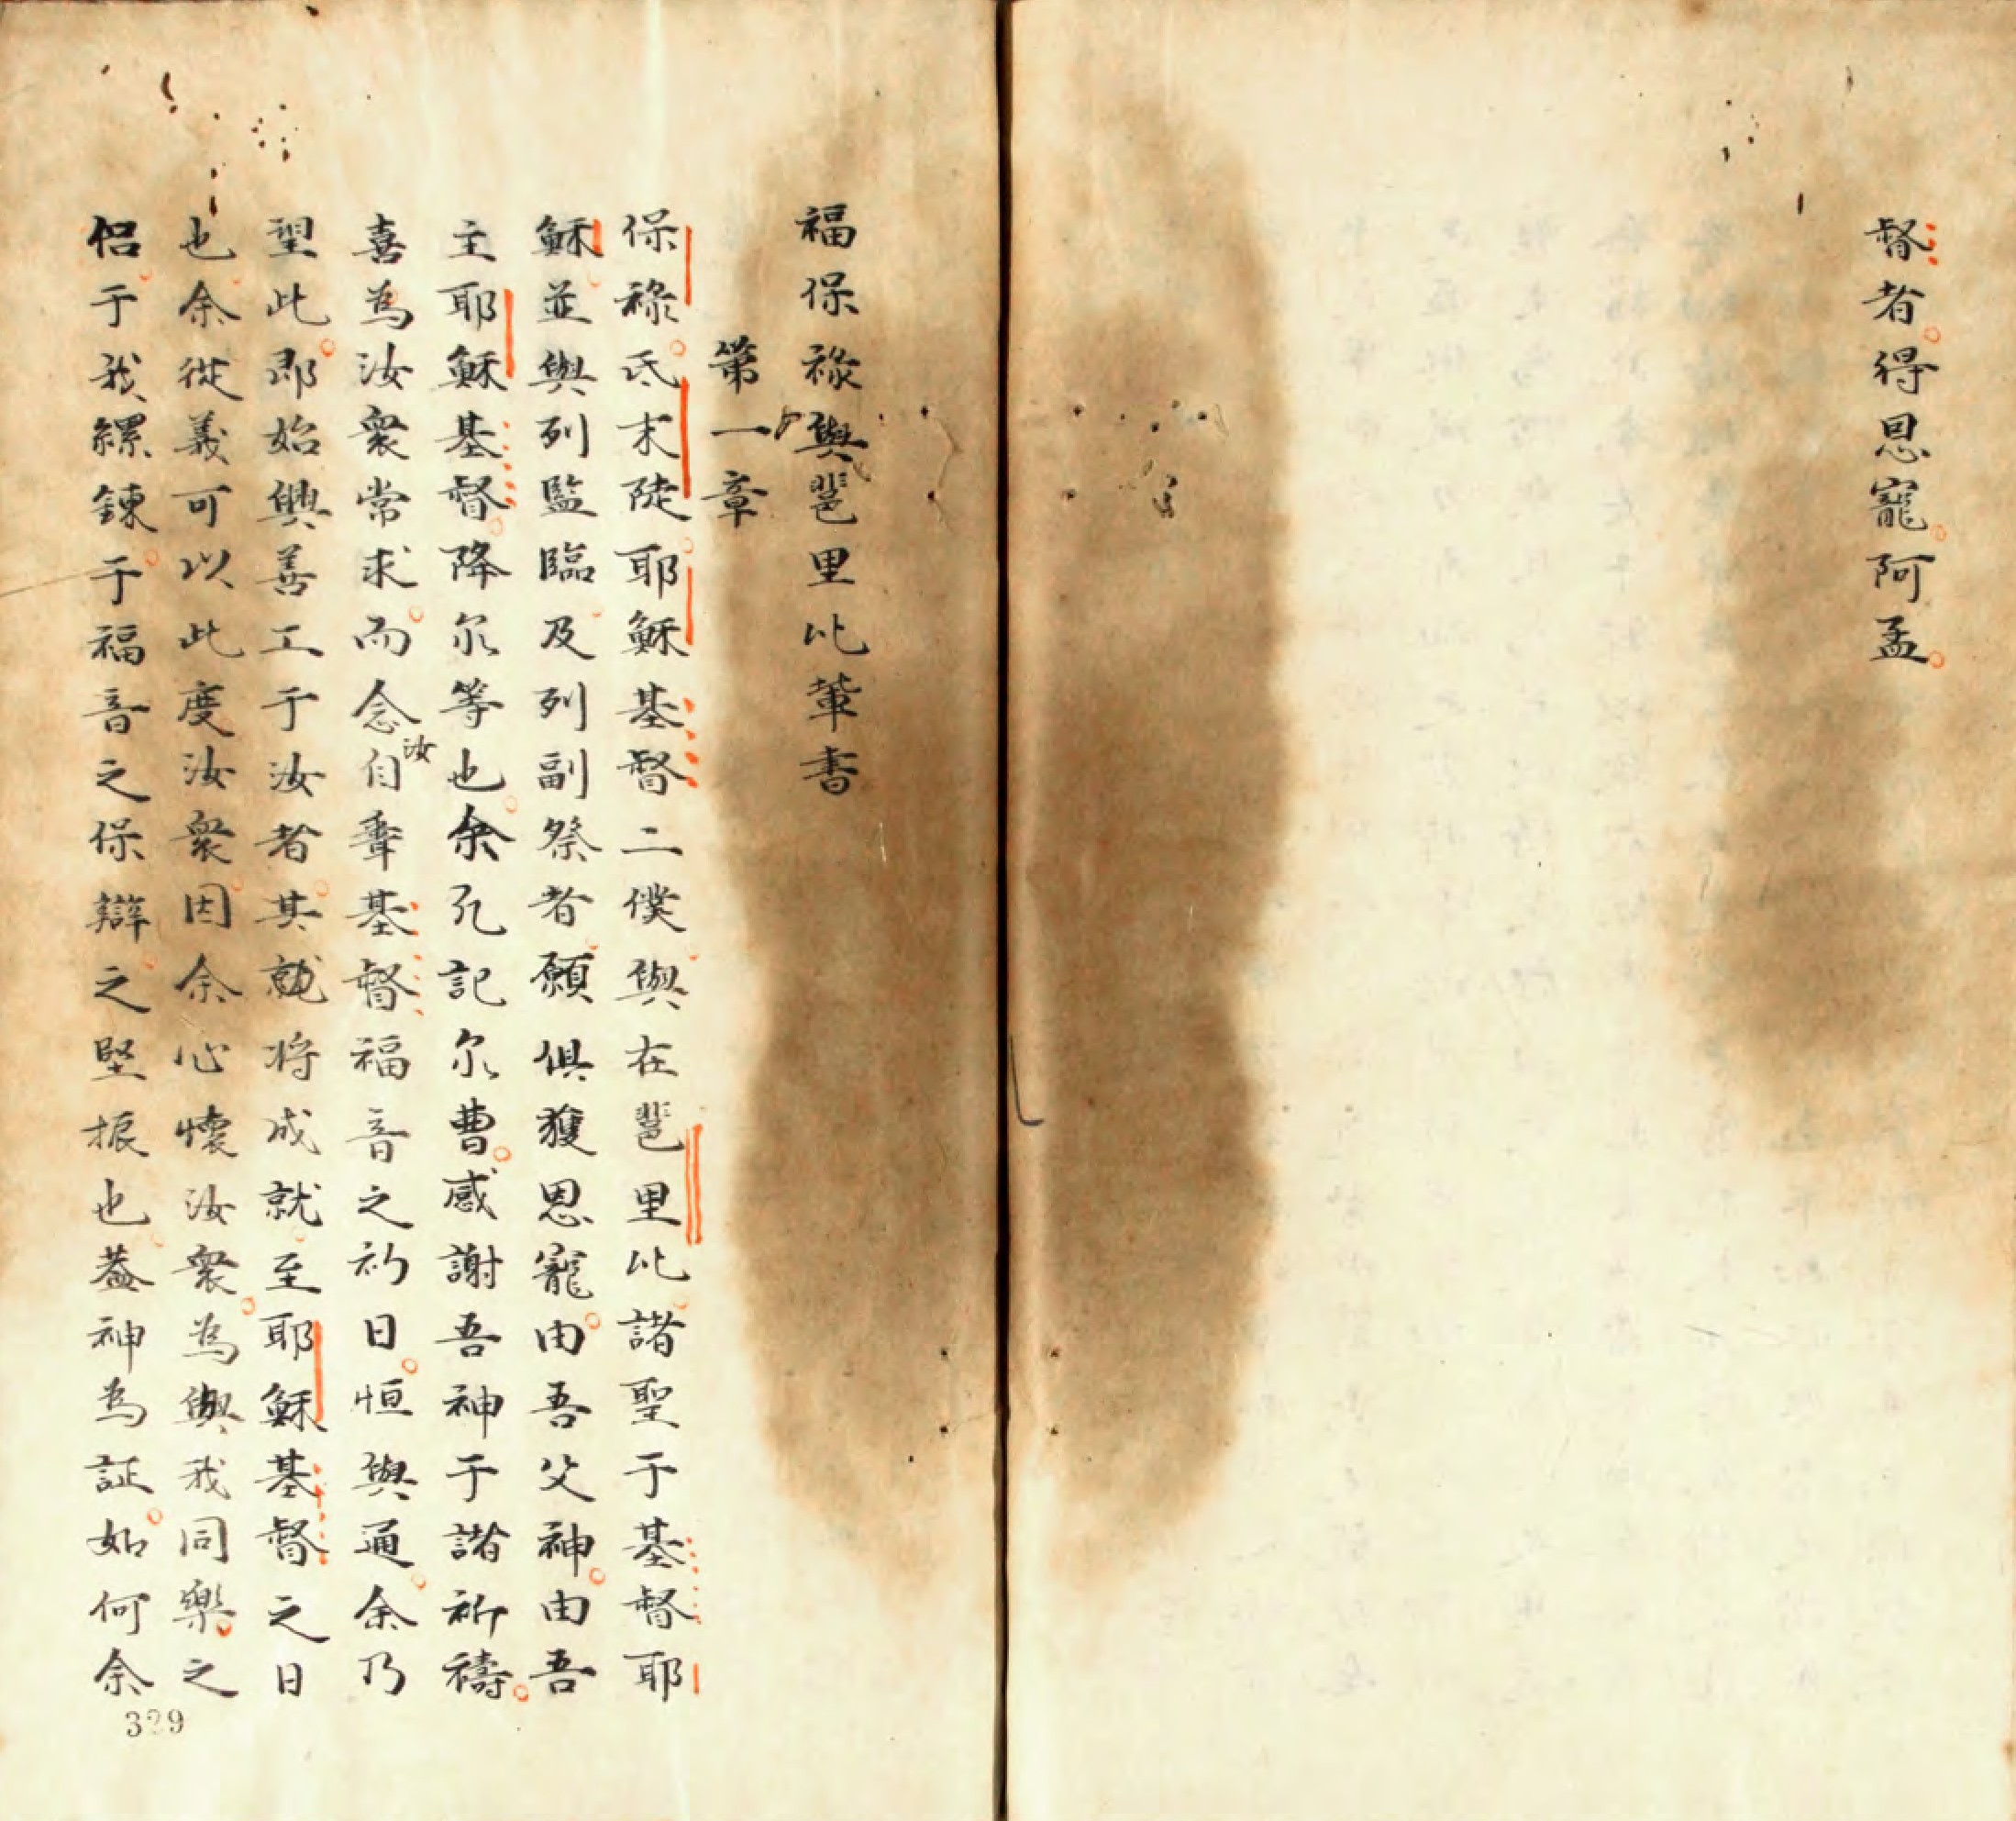 督者得恩寵阿孟
福保祿與琶里比輩書
第一章
保祿氐末陡耶穌基督二僕與在琶里比諸聖于基督耶
穌並與列監臨及列副祭者願俱獲恩寵由吾父神由吾
主耶穌基督降尔等也余凡記尔曹感謝吾神于諸祈禱
喜為汝衆常求而念汝自聾基督福音之初日恒與通余乃
望此即始興善工于汝者其就将成就至耶穌基督之日
也余從義可以此度汝衆因余心懷汝衆為與我同樂之
侣于我縲鍊于福音之保辯之堅振也葢神為証如何余
329